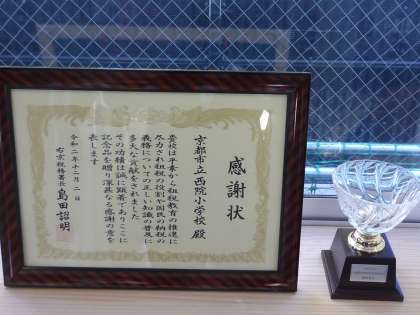 感謝状
京都市立西院小学校 殿
貴校は平素から租税教育の推進に
尽力され租税の役割や国民の納税の
義務についての正しい知識の普及に
多大な貢献をされました
その功績は誠に顕著でありここに
記念品を贈り深甚なる感謝の意を
表します
令和二年十二月二日
右京税務署長 島田詔明